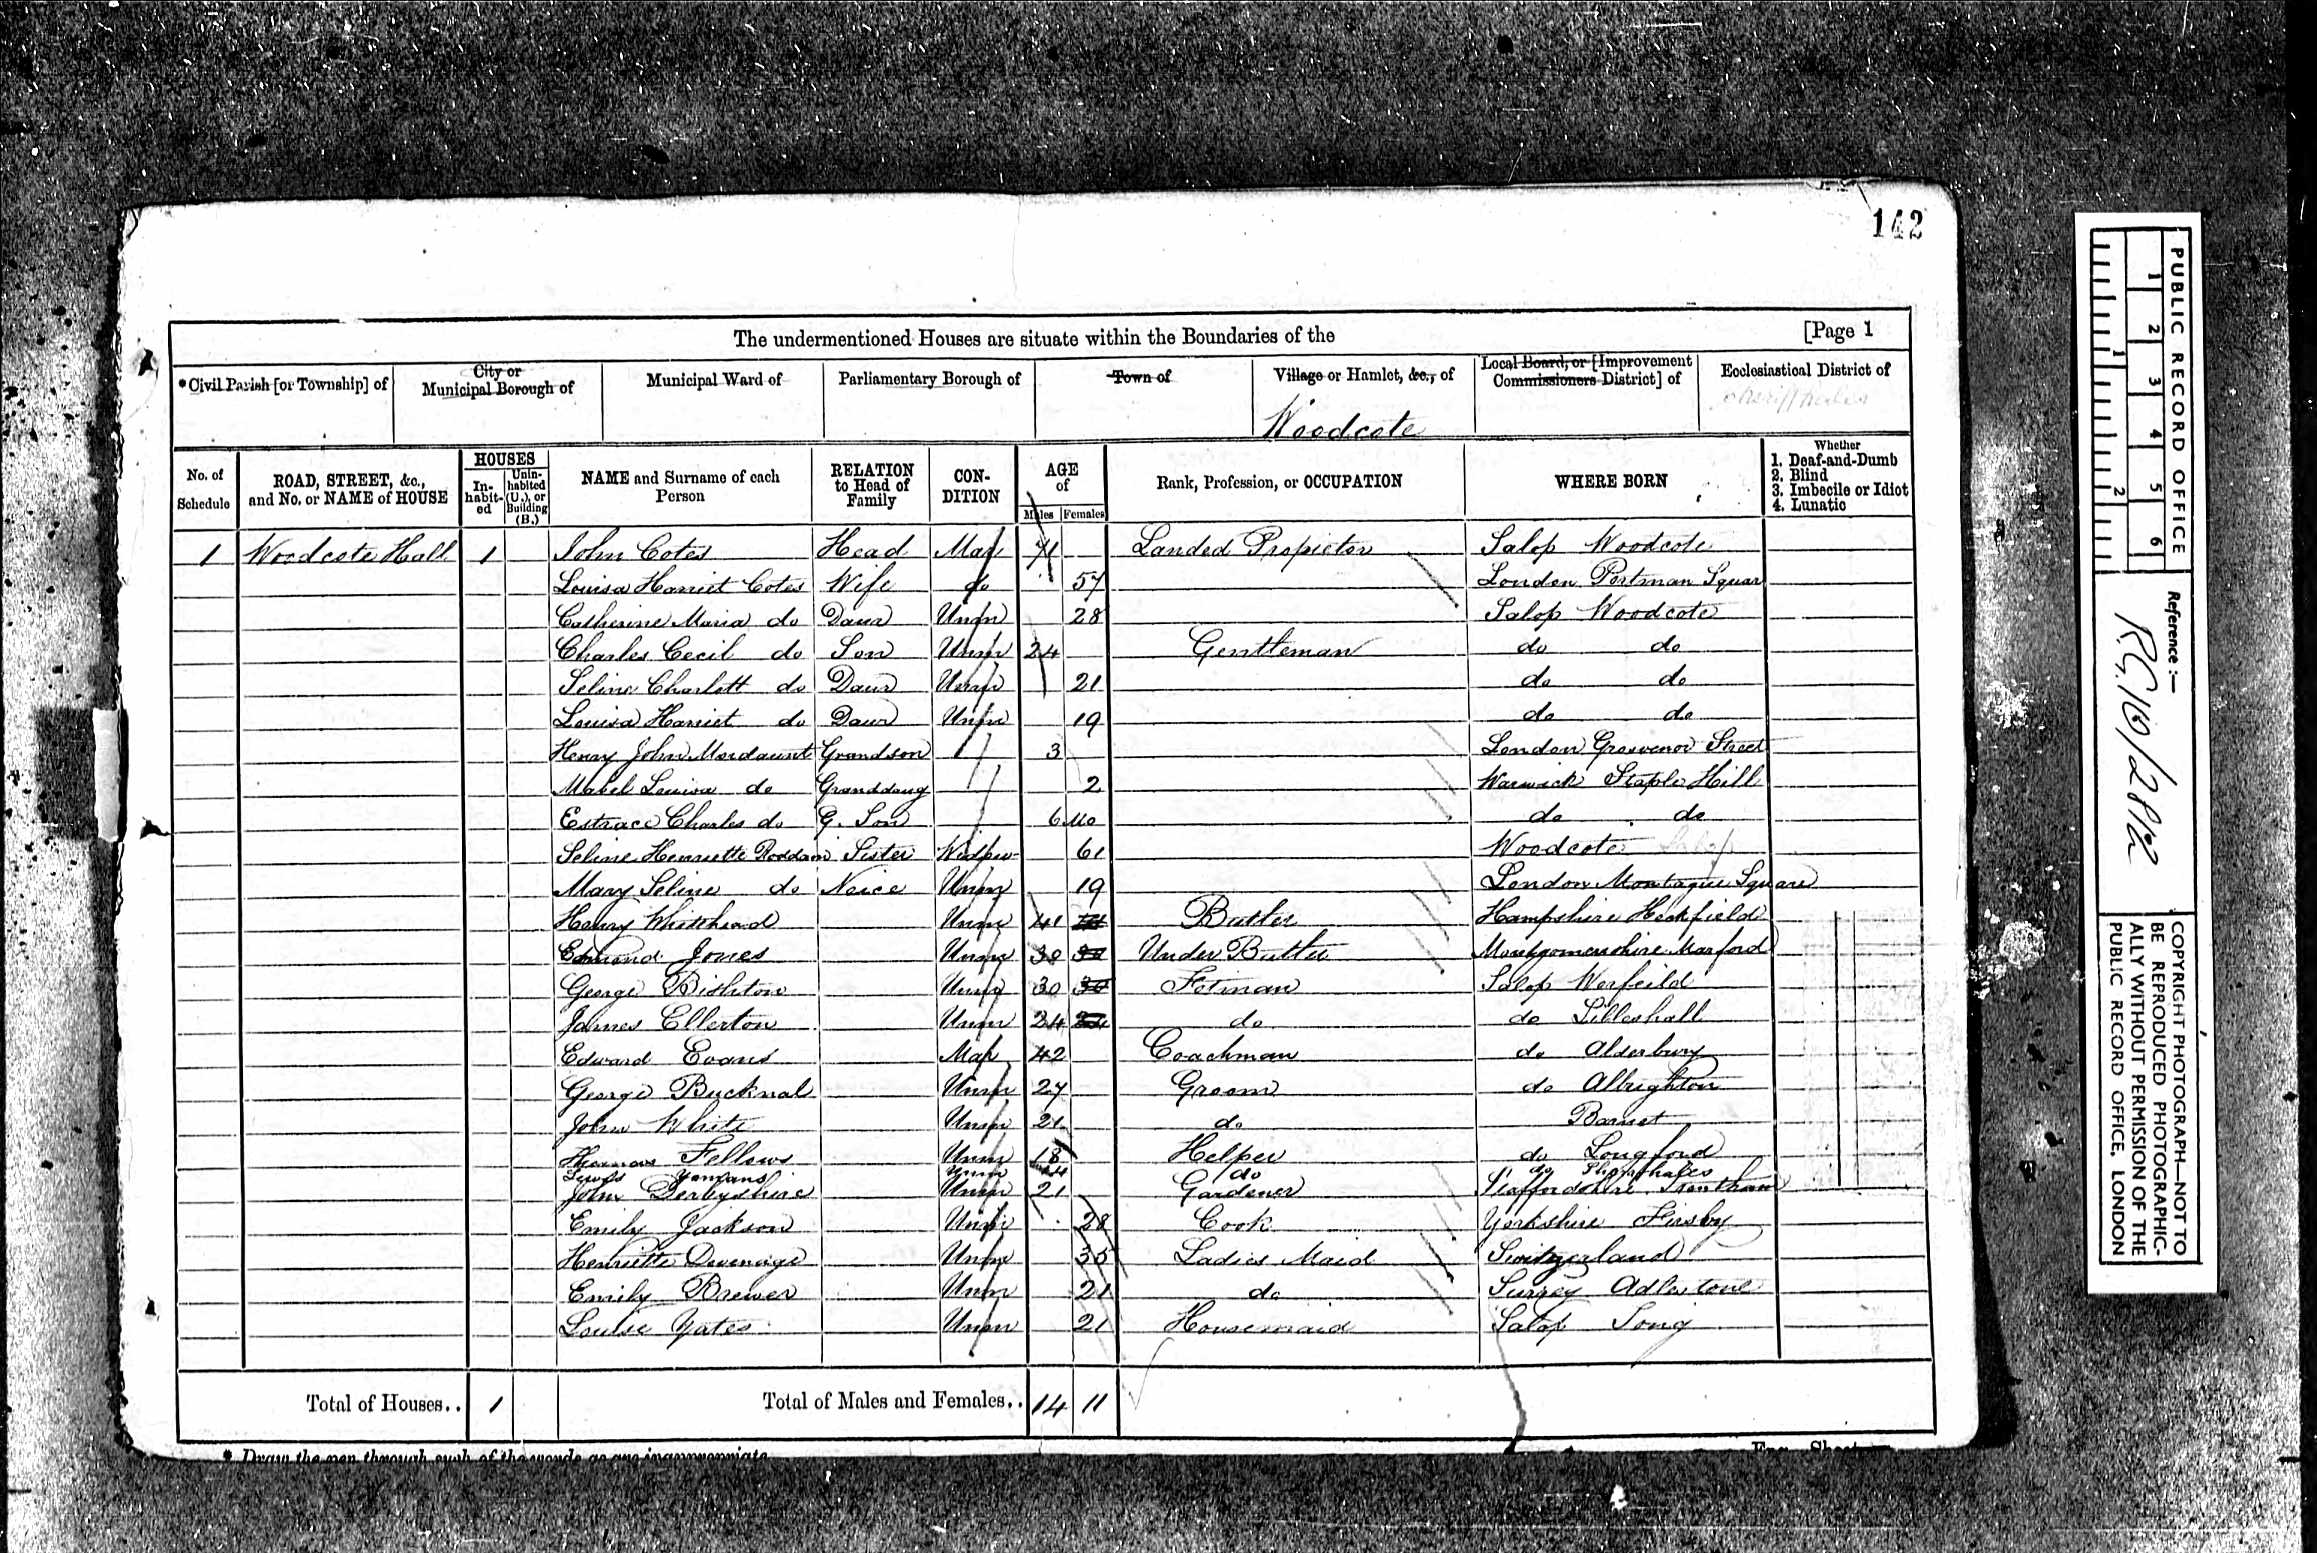 142
The undermentioned Houses are situate within the Boundaries of the [Page 1
*Civil Parish [or Township] of
City or Municipal Borough of
Municipal Ward of
Parliamentary Borough of
Town of
Village or Hamlet, &c., of
Local Board, or [Improvement Commissioners District] of
Ecclesiastical District of
Woodcote
No. of Schedule
ROAD, STREET, &c., and No. or NAME of HOUSE
HOUSES
In-habit-ed
Unin-habited (U.), or Building (B.)
NAME and Surname of each Person
RELATION to Head of Family
CON-DITION
AGE of
Males Females
Rank, Profession, or OCCUPATION
WHERE BORN
Whether
1. Deaf-and-Dumb
2. Blind
3. Imbecile or Idiot
4. Lunatic
1 Woodcote Hall 1 John Cotes Head Mar 71 Landed Propietor Salop Woodcote
Louisa Harriet Cotes Wife do 57 London Portman Squar
Catherine Maria do Daur Unm 28 Salop Woodcote
Charles Cecil do Son Unm 24 Gentleman do do
Seline Charlott do Daur Unm 21 do do
Louisa Harriet do Daur Unm 19 do do
Henry John Mordaunt Grandson 3 London Grosvenor Street
Mabel Louisa do Granddaug 2 Warwick Staple Hill
Estrace Charles do G. Son 6 Mo do do
Seline Henriette Roddam Sister Widow 61 Woodcote Salop
Mary Seline do Neice Unm 19 London Montague Square
Henry Whitehead Unm 41 Butler Hampshire Heckfield
Edmond Jones Unm 30 Under Butler Montgomershire Marford
George Bishton Unm 30 Fotman Salop Worfeild
James Ellerton Unm 24 do do Lilleshall
Edward Evans Mar 42 Coachman do Alderbury
George Bucknal Unm 27 Groom do Albrighton
John White Unm 21 do Barnet
Thomas Fellows Unm 18 Helper do Longford
Lewis Yomans Unm do do
John Derbyshire Unm 21 Gardener Staffordshire Trentham
Emily Jackson Unm 28 Cook Yorkshire Firsby
Henriette Unm 35 Ladies Maid Switzerland
Emily Brewer Unm 21 do Surrey
Louise Yates Unm 21 Housemaid Salop Tong
Total of Houses.. 1 Total of Males and Females.. 14 11
* Draw the pen through such of the words as are inappropriate.
Eng.—Sheet
PUBLIC RECORD OFFICE
1 2 3 4 5 6
1 2
Reference :—
RG 10/2812
COPYRIGHT PHOTOGRAPH—NOT TO BE REPRODUCED PHOTOGRAPHIC-ALLY WITHOUT PERMISSION OF THE PUBLIC RECORD OFFICE, LONDON